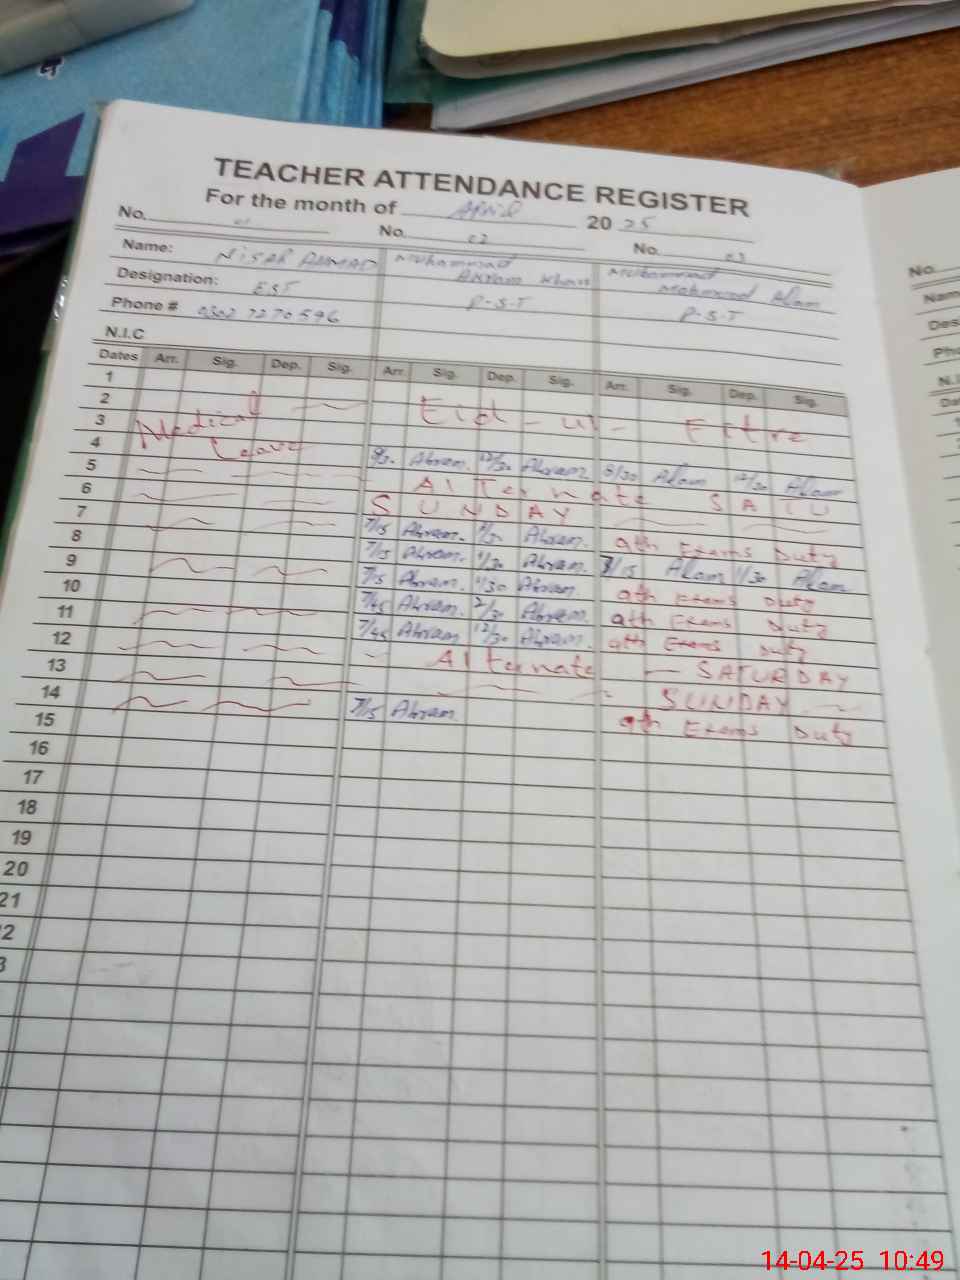 TEACHER ATTENDANCE REGISTER
For the month of April 20 25
No. 01 No. 02 No. 03
Name: NISAR AHMAD Muhammad Akram Khan Muhammad Mahmood Alam
Designation: EST P-S-T P-S-T
Phone # 0302 7270596
N.I.C
Dates Arr. Sig. Dep. Sig. Arr. Sig. Dep. Sig. Arr. Sig. Dep. Sig.
1
2 Medical Eid - ul - Fitre
3 Leave
4 8/30 Akram. 12/30 Akram 8/30 Alam 12/30 Alam
5 Alternate SATU
6 SUNDAY
7 7/15 Akram. 1/30 Akram. 9th Exams Duty
8 7/15 Akram. 1/30 Akram. 7/15 Alam 1/30 Alam
9 7/15 Akram. 1/30 Akram. 9th Exams Duty
10 7/45 Akram. 2/30 Akram. 9th Exams Duty
11 7/45 Akram 12/30 Akram. 9th Exams Duty
12 Alternate - SATURDAY
13 SUNDAY
14 7/15 Akram. 9th Exams Duty
15
16
17
18
19
20
21
2
3
No.
Nam
Des
Pho
N.I
Da
14-04-25 10:49